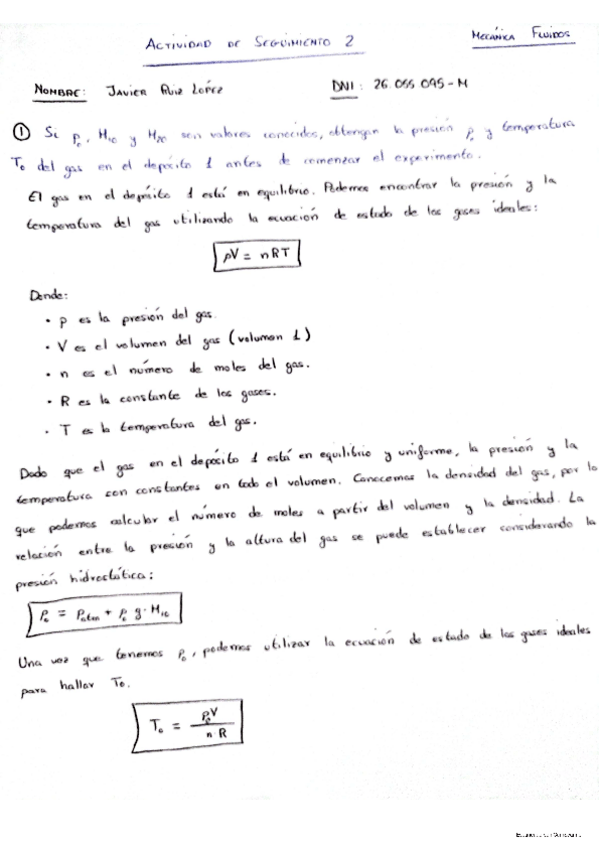 ACTIVIDAD DE SEGUIMIENTO 2
MECÁNICA FLUIDOS
NOMBRE: JAVIER RUIZ LOPEZ
DNI: 26.055.095-M
① Si ρ₀, H₁₀ y H₂₀ son valores conocidos, obtengan la presión p₀ y temperatura
T₀ del gas en el depósito 1 antes de comenzar el experimento.
El gas en el depósito 1 está en equilibrio. Podemos encontrar la presión y la
temperatura del gas utilizando la ecuación de estado de los gases ideales:
pV = nRT
Donde:
• p es la presión del gas.
• V es el volumen del gas (volumen 1)
• n es el número de moles del gas.
• R es la constante de los gases.
• T es la temperatura del gas.
Dado que el gas en el depósito 1 está en equilibrio y uniforme, la presión y la
temperatura son constantes en todo el volumen. Conocemos la densidad del gas, por lo
que podemos calcular el número de moles a partir del volumen y la densidad. La
relación entre la presión y la altura del gas se puede establecer considerando la
presión hidrostática:
P₀ = Patm + ρ₀ g · H₁₀
Una vez que tenemos p₀, podemos utilizar la ecuación de estado de los gases ideales
para hallar T₀.
T₀ = p₀V / nR